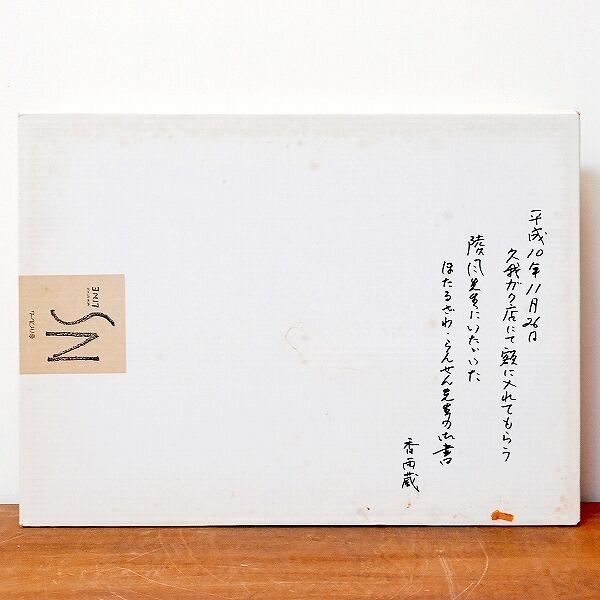 平成10年11月26日
久我ガク店にて額に入れてもらう
陵風先生にいたゞいた
ほたるざわ・らんせん先生の御書
香雨蔵
SN
LINE